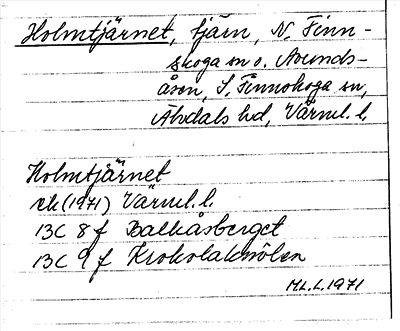 Holmtjärnet, tjärn, N. Finn-
skoga sn o. Avunds-
åsen, S. Finnskoga sn,
Älvdals hd, Värml. l.
Holmtjärnet
ek (1971) Värml. l.
13C 8f Balkåsberget
13C 9f Krokolaknölen
M.L.L. 1971